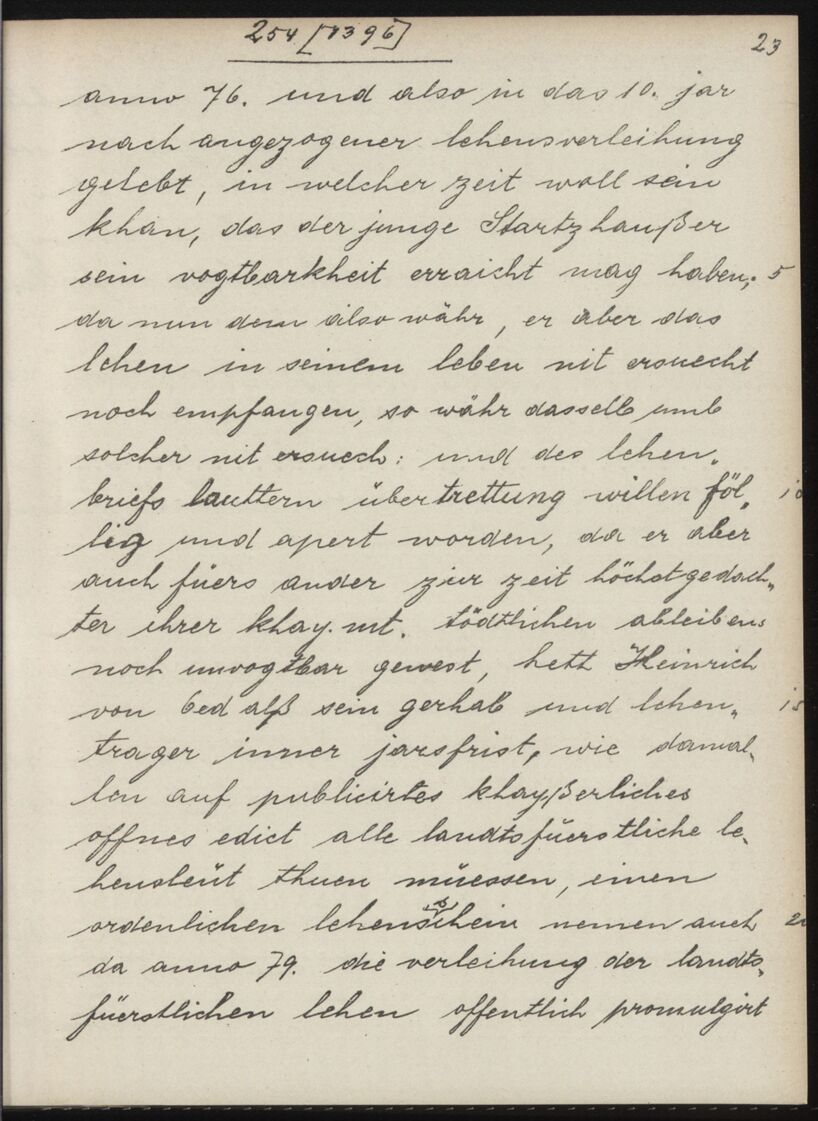 254 [1396]
23
anno 76. und also in das 10. jar
nach angezogener lehensverleihung
gelebt, in welcher zeit woll sein
khan, das der junge Startzhaußer
sein vogtbarkheit erraicht mag haben; 5
da nun dem also währ, er aber das
lehen in seinem leben nit ersuecht
noch empfangen, so währ dasselb umb
solcher nit ersuech: und des lehen„
briefs lauttern übertrettung willen föl„ 10
lig und apert worden, da er aber
auch füers ander zur zeit höchstgedach„
ter ihrer khay. mt. tödtlichen ableibens
noch unvogtbar gewest, hett Heinrich
von Ued alß sein gerhab und lehen„ 15
trager inner jarsfrist, wie damal„
len auf publicirtes khayßerliches
offnes edict alle landtsfüerstliche le„
hensleüt thuen müessen, einen
ordenlichen lehensschein nemen auch 20
da anno 79. die verleihung der landts„
füerstlichen lehen offentlich promulgirt